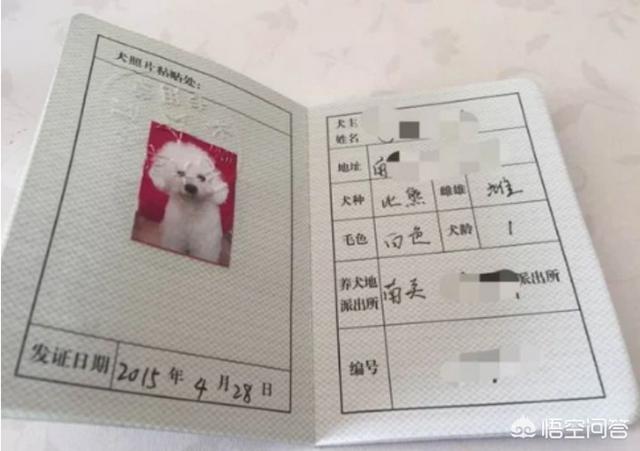 犬照片粘贴处：
发证日期 2015 年 4 月 28 日
犬主姓名
地址
犬种 比熊 雌雄 雄
毛色 白色 犬龄 1
养犬地派出所 派出所
编号
悟空问答